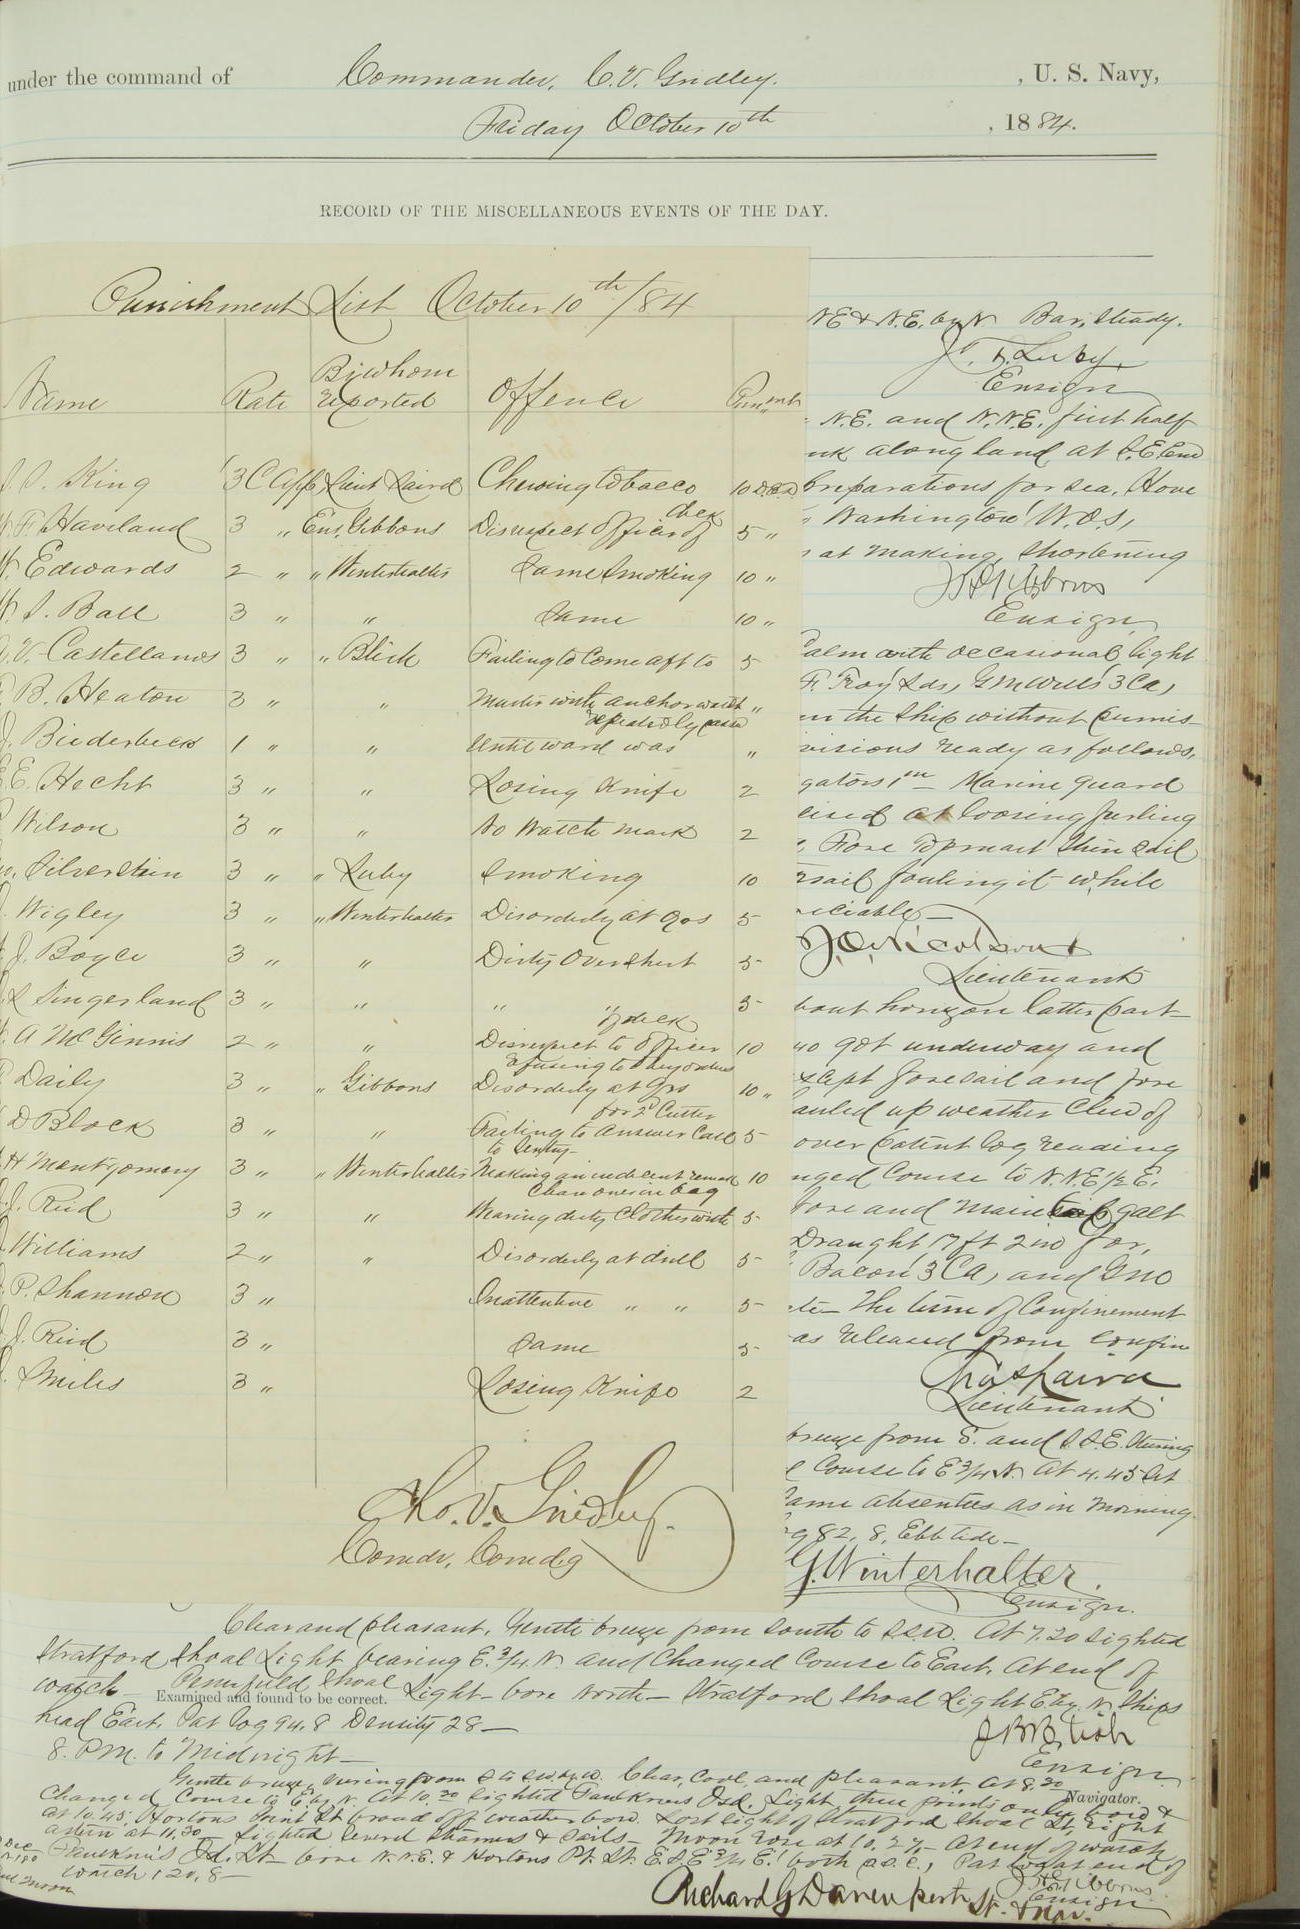 under the command of Commander, C. V. Gridley. , U. S. Navy,
Friday October 10th , 1884.
RECORD OF THE MISCELLANEOUS EVENTS OF THE DAY.
Punishment List October 10th/84
Name Rate By whom reported Offence
King 3 C App Lieut Laird Chewing tobacco 10
F. Haviland 3 " Ens. Gibbons Disrespect officer of deck 5 "
Edwards 2 " " Winterhalter Same Smoking 10 "
Ball 3 " " Same 10 "
V. Castellanos 3 " " Blish Failing to come aft to 5
B. Heaton 3 " " Muster with anchor watch "
repeatedly
Biederbeck 1 " " Until word was "
E. Hecht 3 " " Losing Knife 2
Wilson 3 " " No Watch mark 2
Silverstein 3 " " Luby Smoking 10
Wigley 3 " " Winterhalter Disorderly at qrs 5
J. Boyce 3 " " Dirty Overshirt 5
Singerland 3 " " " " 5
of deck
A McGinnis 2 " " Disrespect to officer 10
refusing to obey orders
Daily 3 " " Gibbons Disorderly at qrs 10 "
for 2d Cutter
D Block 3 " " Failing to answer call 5
to Sentry
H Montgomery 3 " " Winterhalter Making an indecent remark 10
Clean ones in bag
J. Reid 3 " " Wearing dirty clothes with 5
Williams 2 " " Disorderly at drill 5
P. Shannon 3 " Inattentive " " 5
J. Reid 3 " Same 5
Miles 3 " Losing Knife 2
Chas. V. Gridley.
Comdr, Comdg
NE & N.E. by N Bar, Steady.
J. F. Luby
Ensign
N.E. and N.N.E. first half
along land at S.E End
preparations for sea. Hove
Washington W.O.S,
at making, Shortening
J H Gibbons
Ensign
Calm with occasional light
F. Troy Lds, G M Wells 3 Ca,
the Ship without permis-
visions ready as follows,
gators 1m — Marine guard
cised at loosing furling
Fore Topmast Stun sail
sail fouling it while
J.O. Nicolson
Lieutenant
bout horizon latter part
40 got underway and
xcept foresail and fore
auled up weather Clew of
over Patent log reading
nged Course to N.N.E 1/2 E.
fore and main gaff
Draught 17 ft 2 in for,
Bacon 3 Ca, and Geo
The time of Confinement
as released from confin
Chas Laird
Lieutenant
breeze from S. and S.S.E. During
Course to E 3/4 N. At 4.45 Set
Same absentees as in Morning.
g 82, 8, Ebb tide —
G. Winterhalter.
Ensign.
Clear and pleasant. Gentle breeze from South to SSW. At 7.20 sighted
Stratford Shoal Light bearing E. 3/4. N. and Changed Course to East. At end of
watch — Penfield Shoal Light bore North — Stratford Shoal Light E. by. N. Ships
Examined and found to be correct.
head East. Pat log 94.8 Density 28 —
J B Blish
Ensign
8. P.M. to Midnight —
Gentle breeze, from S to Clear, Cool, and pleasant. At 8.20
Navigator.
Changed Course to E by N. At 10.20 Sighted Faulkners Isd. Light, three points on bow &
At 10.45, Hortons Point Lt broad off weather bow. Lost light of Stratford Shoal Lt, Light
astern at 11.30 Sighted Several Steamers & Sails — Moon rose at 10.27 — At end of watch
Faulkners Isd. Lt bore N.N.E. & Hortons Pt. Lt. E.S.E 3/4 E. both Pat log at end of
watch 120.8 —
J H Gibbons
Ensign
Richard G Davenport
Lt. & Nav.